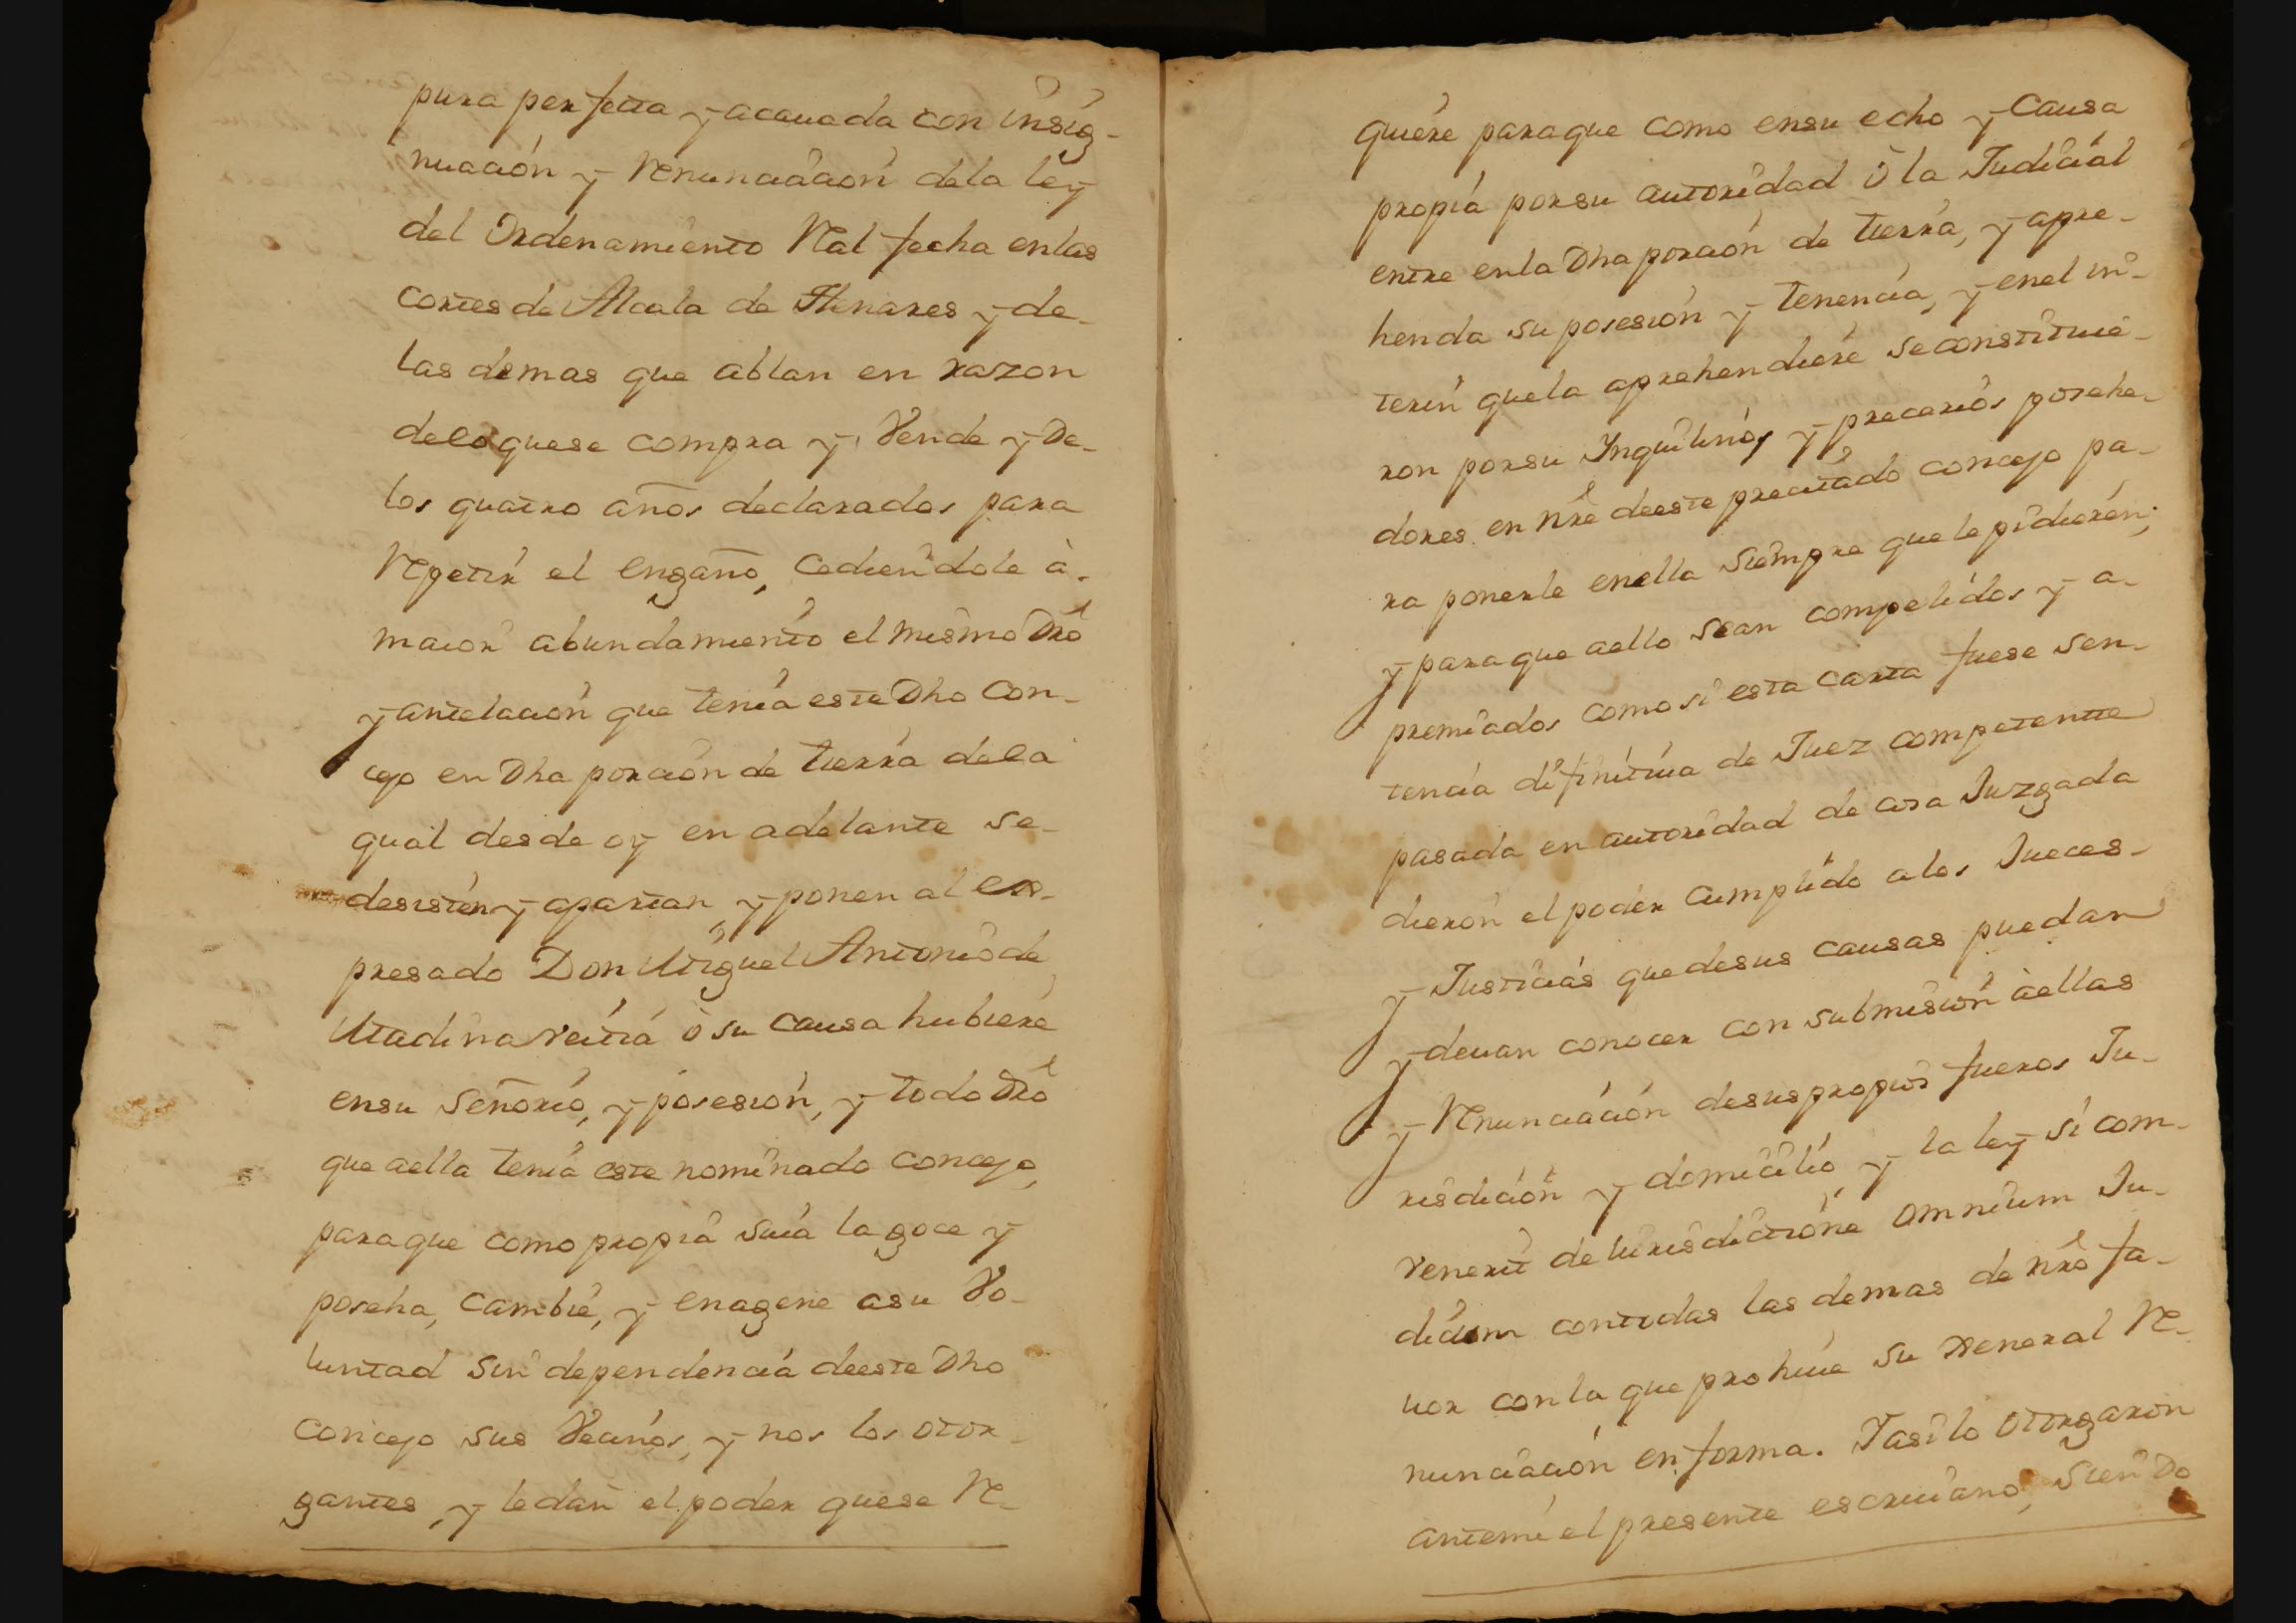 pura perfecta y acauada con insig-
nuación y renunciación dela ley
del Ordenamiento Real fecha enlas
cortes de Alcala de Henares y de-
las demas que ablan en razon
delo quese compra y Vende y De-
los quatro años declarados para
repetir el engaño, cediendole à-
maior abundamiento el mismo Dro
y antelación que tenía este Dho Con-
cejo en Dha porción de tierra dela
qual desde oy en adelante se-
desisten y apartan, y ponen al ex-
presado Don Miguel Antonio de
Madinaveitia ò su Causa hubiere
ensu Señorío, y posesión, y todo Dro
que aella tenía este nominado concejo,
paraque como propia suia la goce y
poseha, cambie, y enagene asu Vo-
luntad sin dependencia deeste Dho
Concejo sus Vecinos, y nos los otor-
gantes, y ledan el poder quese re-
quiere paraque como ensu echo y Causa
propia porsu autoridad ò la Judicial
entre enla Dha porción de tierra, y apre-
henda su posesión y tenencia, y enel in-
terin quela aprehendiere seconstituie-
ron porsu Inquilinos y precarios posehe-
dores en nre deeste precitado concejo pa-
ra ponerle enella siempre quele pidieren;
y paraque aello sean compelidos y a-
premiados como si esta carta fuese sen-
tencia difinitiua de Juez competente
pasada en autoridad de cosa Juzgada
dieron el poder cumplido alos Jueces-
y Justicias quedesus causas puedan
y deuan conocer con submisión àellas
y renunciación desus propios fueros Ju-
risdición y domicilio y la ley si com-
venerit de iurisdictione omnium Ju-
dicum contodas las demas de nro fa-
uor conla que prohiue su xeneral re-
nunciación en forma. Yasilo otorgaron
antemi el presente escriuano, siendo